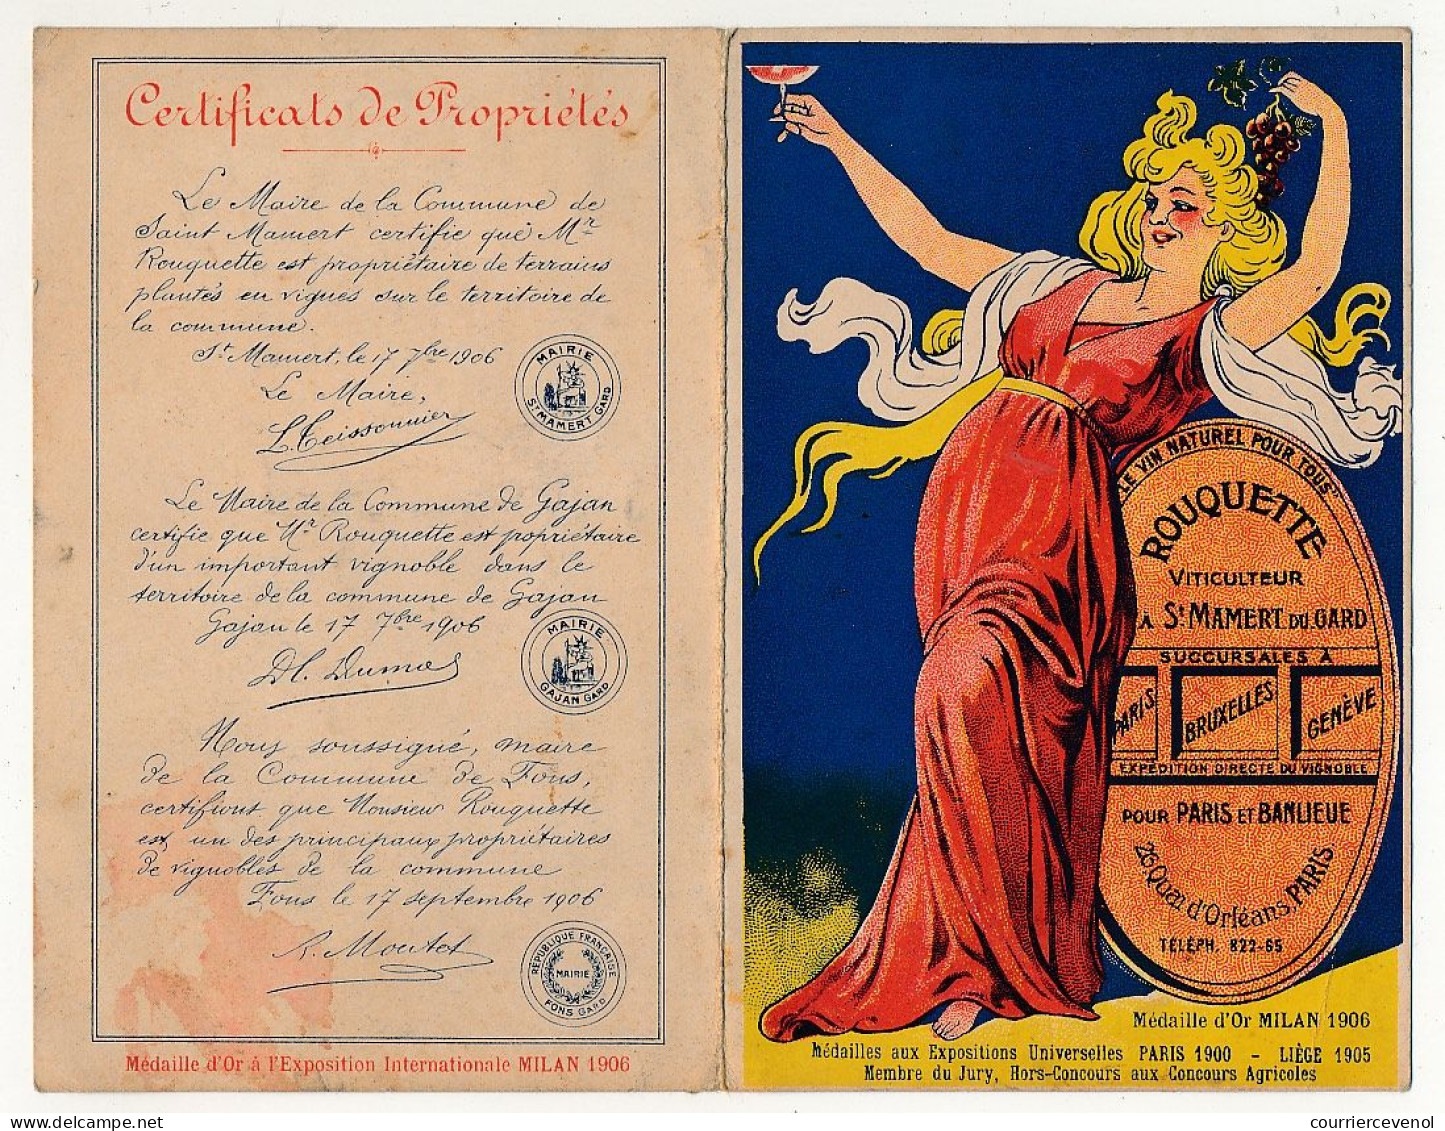 Certificats de Propriétés
Le Maire de la Commune de
Saint Mamert certifie que Mr
Rouquette est propriétaire de terrains
plantés en vignes sur le territoire de
la commune.
St Mamert, le 17 7bre 1906
Le Maire,
L. Teissonnier
MAIRIE
ST MAMERT GARD
Le Maire de la Commune de Gajan
certifie que Mr Rouquette est propriétaire
d'un important vignoble dans le
territoire de la commune de Gajan
Gajan le 17 7bre 1906
Dl. Dumas
MAIRIE
GAJAN GARD
Nous soussigné, maire
de la Commune de Fons,
certifions que Monsieur Rouquette
est un des principaux propriétaires
de vignobles de la commune
Fons le 17 septembre 1906
R. Moutet
RÉPUBLIQUE FRANÇAISE
MAIRIE
FONS GARD
Médaille d'Or à l'Exposition Internationale MILAN 1906
"LE VIN NATUREL POUR TOUS"
ROUQUETTE
VITICULTEUR
À ST MAMERT DU GARD
SUCCURSALES À
PARIS BRUXELLES GENÈVE
EXPÉDITION DIRECTE DU VIGNOBLE
POUR PARIS ET BANLIEUE
26 Quai d'Orléans, PARIS
TÉLÉPH. 822-65
Médaille d'Or MILAN 1906
Médailles aux Expositions Universelles PARIS 1900 - LIÈGE 1905
Membre du Jury, Hors-Concours aux Concours Agricoles
courriercevenol